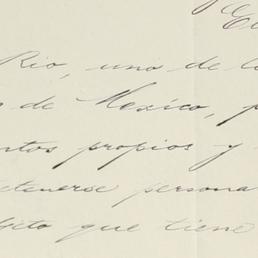 Rio, uno de
de Mexico,
propios y
tenerse persona
que tiene